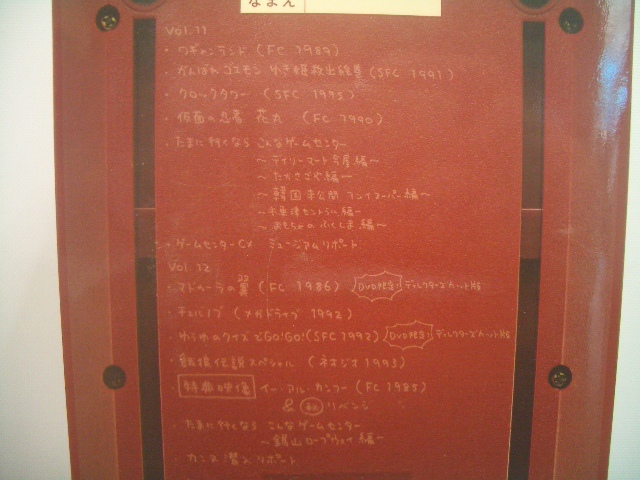 なまえ
Vol.11
・ワギャンランド (FC 1989)
・がんばれゴエモン ゆき姫救出絵巻 (SFC 1991)
・クロックタワー (SFC 1995)
・仮面の忍者 花丸 (FC 1990)
・たまに行くなら こんなゲームセンター
〜デイリーマート今屋編〜
〜たかさごや編〜
〜韓国未公開 ファイヤーバー編〜
〜おもちゃのふくしま編〜
ゲームセンターCX ミュージアムリポート
Vol.12
・マドゥーラの翼 (FC 1986) DVD限定! ディレクターズカット版
・チェルノブ (メガドライブ 1992)
・ゆうゆのクイズでGO!GO! (SFC 1992) DVD限定! ディレクターズカット版
・餓狼伝説スペシャル (ネオジオ 1993)
特典映像 イー・アル・カンフー (FC 1985)
& リベンジ
・たまに行くなら こんなゲームセンター
〜銚山ロープウェイ編〜
・カンヌ潜入リポート